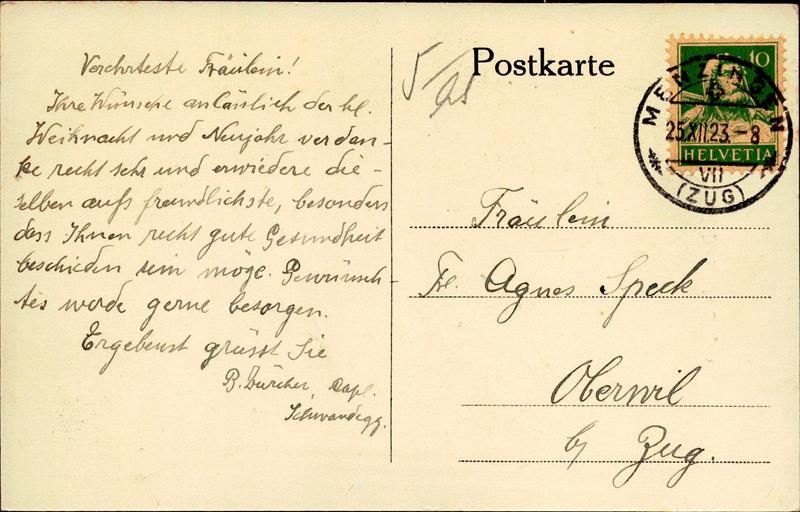 Verehrteste Fräulein!
Ihre Wünsche anlässlich der hl.
Weihnacht und Neujahr verdan-
ke recht sehr und erwiedere die-
selben aufs freundlichste, besonders
dass Ihnen recht gute Gesundheit
beschieden sein möge. Gewünsch-
tes werde gerne besorgen.
Ergebenst grüsst Sie
B. Zürcher, Kapl.
Schwandegg.
5/
Postkarte
10
HELVETIA
MENZINGEN
25.XII.23.-8
VII
(ZUG)
Fräulein
Frl. Agnes Speck
Oberwil
b/ Zug.